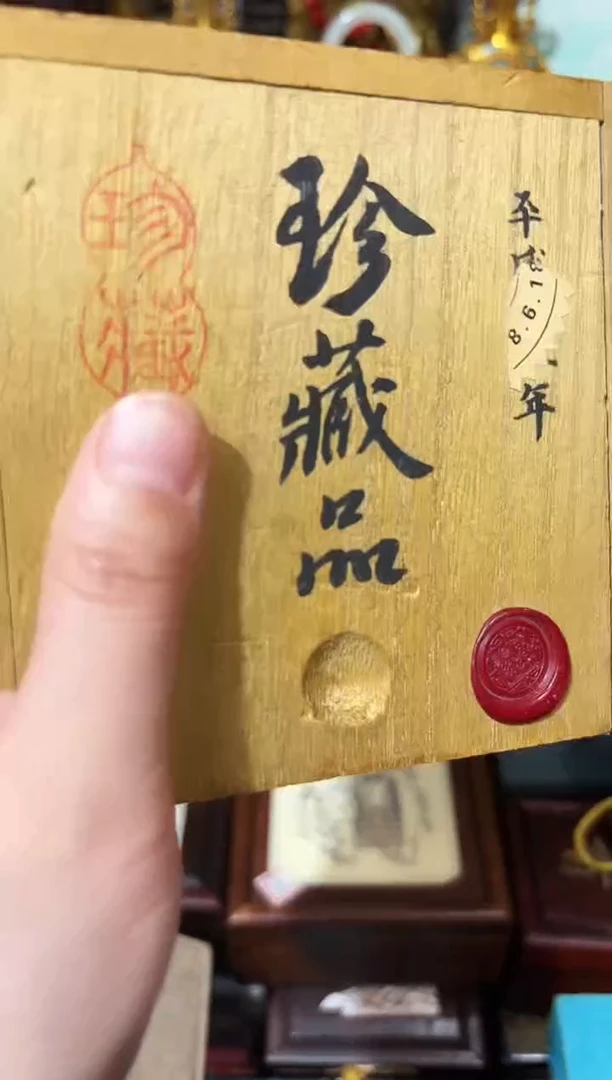 平成
8.6.1
年
珍藏品
珍藏